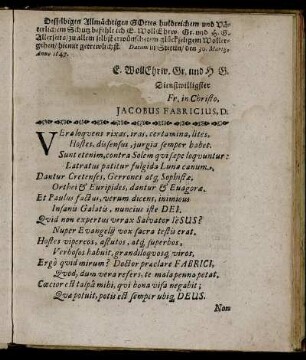 Desselbigen Allmächtigen GOttes huldreichem und Vä-
terlichem Schutz befehle ich E. WollEhrw. Gr. und H. G.
Allerseits, zu allen selbst erwünschetem glückseligem Woller-
gehen/ hiemit getrewlichst. Datum in Stettin/ den 30. Martij,
Anno 1647.
E. WollEhrw. Gr. und H G.
Dienstwilligster
Fr. in Christo,
JACOBUS FABRICIUS, D.
VEra loqvens rixas, iras, certamina, lites,
Hostes, dissensus, jurgia semper habet.
Sunt etenim, contra Solem qvi sæpe loqvuntur:
Latratus patitur fulgida Luna canum.
Dantur Cretenses, Gerreni atq; Sophistæ,
Orthei & Euripides, dantur & Evagoræ.
Et Paulus factus, verum dicens, inimicus
Insanis Galatis, nuncius iste DEI.
Qvid non expertus verax Salvator IESUS?
Nuper Evangelij vox sacra testis erat.
Hostes vipereos, astutos, atq; superbos,
Verbosos habuit, grandiloqvosq; viros.
Ergò qvid mirum? Doctor præclare FABRICI,
Qvod, dum vera refers, te mala penna petat.
Cæcior est talpâ mihi, qui bona visa negabit;
Qvæ potuit, potis est semper ubiq; DEUS.
Nam